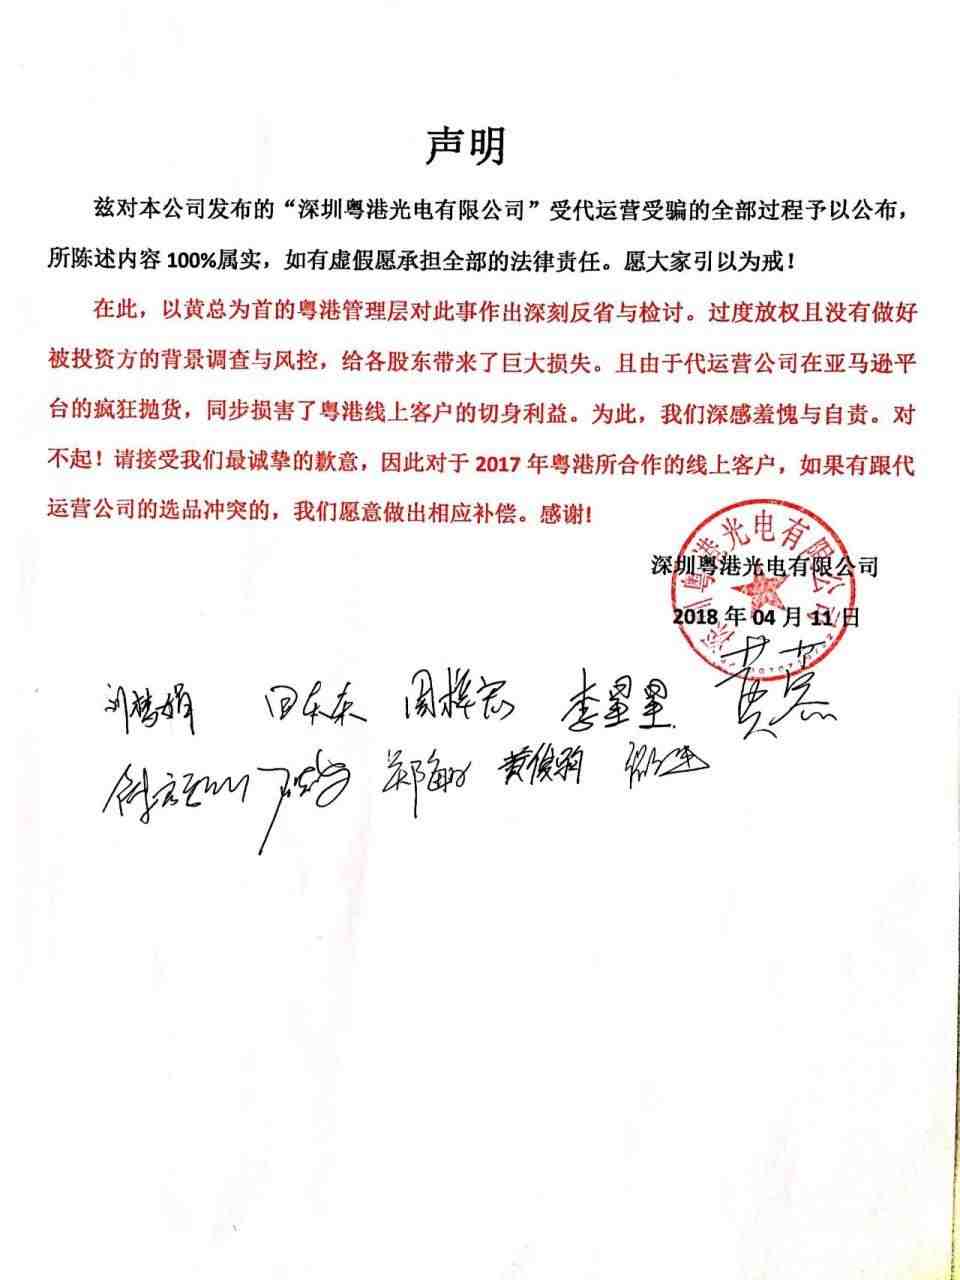 声明
兹对本公司发布的“深圳粤港光电有限公司”受代运营受骗的全部过程予以公布，
所陈述内容 100%属实，如有虚假愿承担全部的法律责任。愿大家引以为戒！
在此，以黄总为首的粤港管理层对此事作出深刻反省与检讨。过度放权且没有做好
被投资方的背景调查与风控，给各股东带来了巨大损失。且由于代运营公司在亚马逊平
台的疯狂抛货，同步损害了粤港线上客户的切身利益。为此，我们深感羞愧与自责。对
不起！请接受我们最诚挚的歉意，因此对于 2017 年粤港所合作的线上客户，如果有跟代
运营公司的选品冲突的，我们愿意做出相应补偿。感谢!
深圳粤港光电有限公司
深圳粤港光电有限公司
2018 年 04 月 11 日
李星星